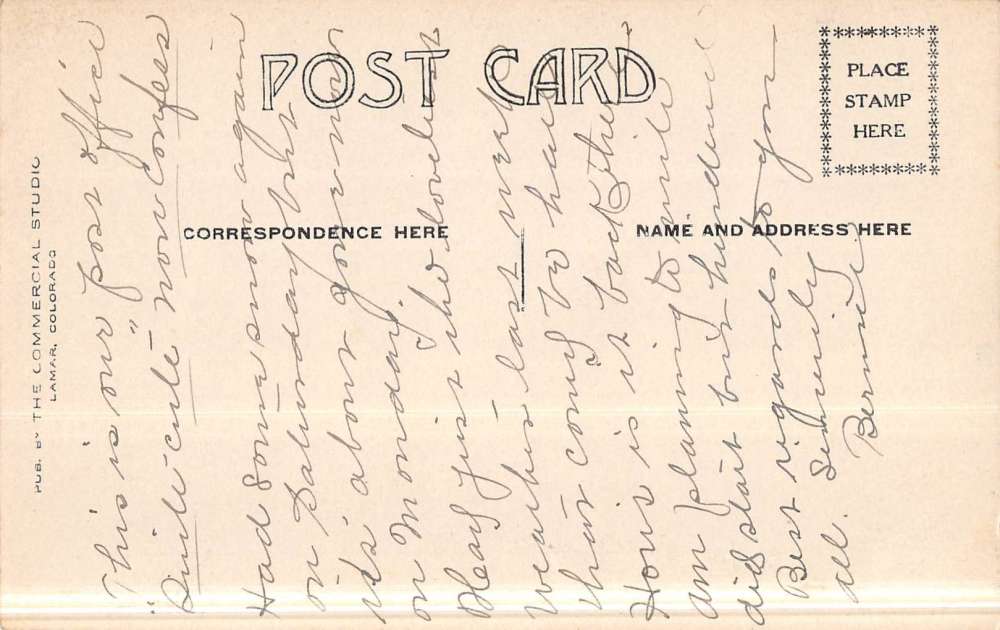 POST CARD
PLACE
STAMP
HERE
CORRESPONDENCE HERE
NAME AND ADDRESS HERE
PUB. BY THE COMMERCIAL STUDIO
LAMAR, COLORADO
"This is our "post office
Quite cute now confess
Had some snow again
on Saturday but
its about gone now
on Monday
Had just the loveliest
weather last week
that coming to have
How is it back there
am planning to write
did start but hundred
Best regards to you
all. Sincerely
Bernice.